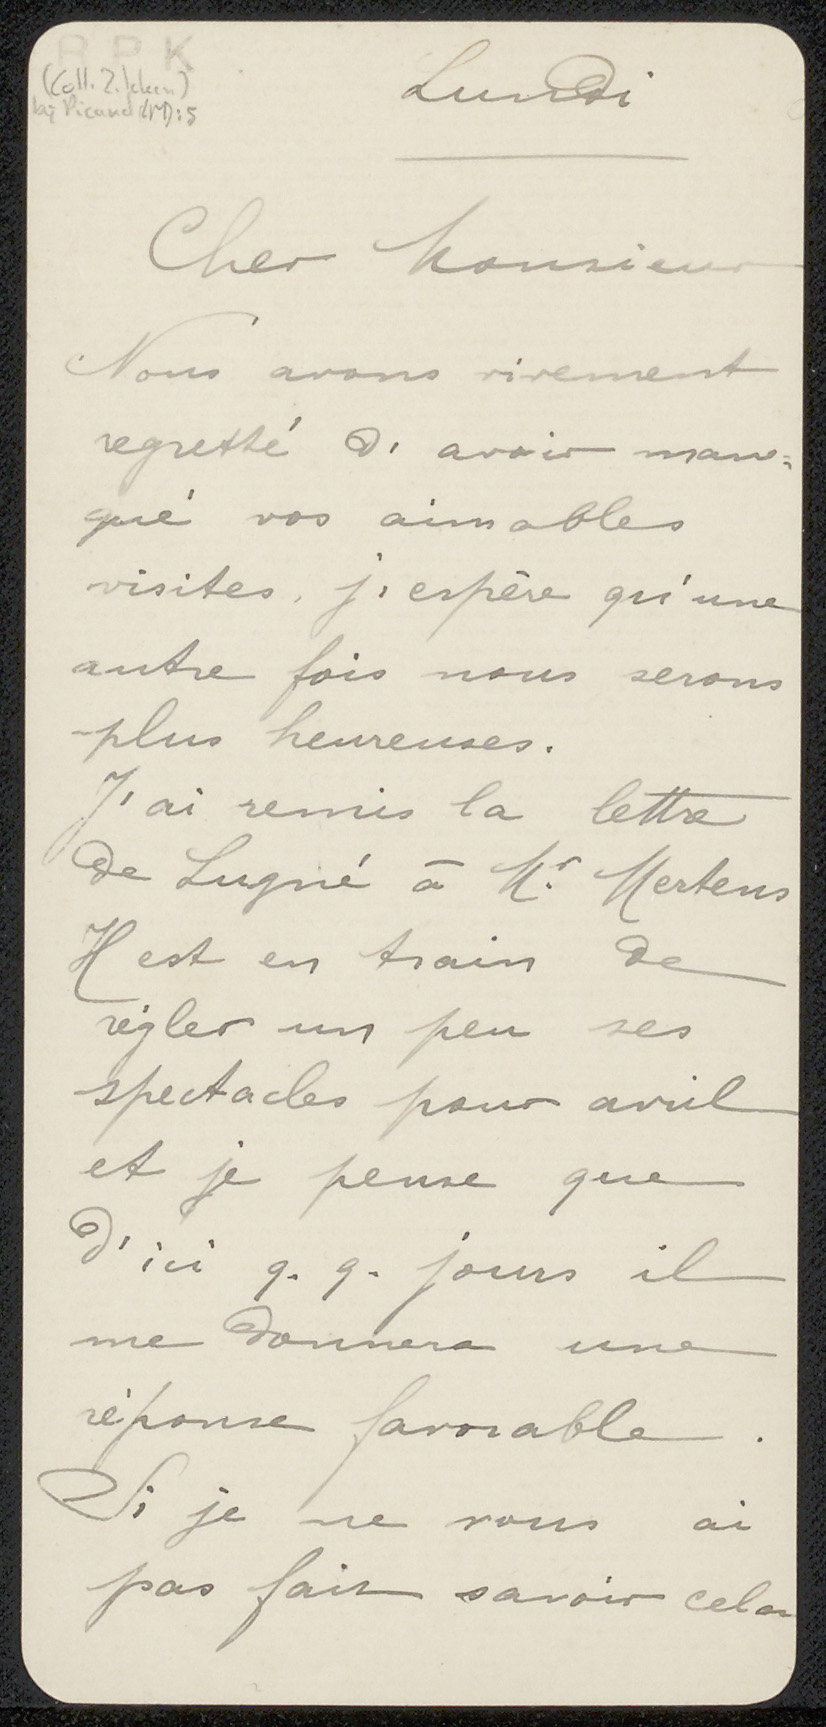 RPK
(Coll. Z.
bij Picard (M): 5
Lundi
Cher Monsieur
Nous avons vivement
regretté d'avoir man=
qué vos aimables
visites, j'espère qu'une
autre fois nous serons
plus heureuses.
J'ai remis la lettre
de Lugné à Mr. Mertens
Il est en train de
régler un peu ses
spectacles pour avril
et je pense que
d'ici q. q. jours il
me donnera une
réponse favorable.
Si je ne vous ai
pas fait savoir cela